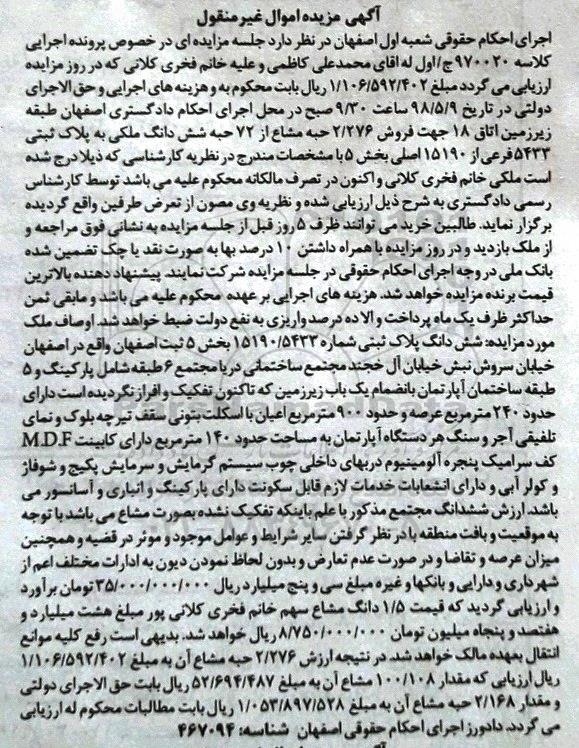 آگهی مزیده اموال غیر منقول
اجرای احکام حقوقی شعبه اول اصفهان در نظر دارد جلسه مزایده ای در خصوص پرونده اجرایی
کلاسه ۹۷۰۰۲۰ ج/اول له اقای محمدعلی کاظمی و علیه خانم فخری کلانی که در روز مزایده
ارزیابی می گردد مبلغ ۱/۱۰۶/۵۹۲/۴۰۲ ریال بابت محکوم به و هزینه های اجرایی و حق الاجرای
دولتی در تاریخ ۹۸/۵/۹ ساعت ۹/۳۰ صبح در محل اجرای احکام دادگستری اصفهان طبقه
زیرزمین اتاق ۱۸ جهت فروش ۲/۲۷۶ حبه مشاع از ۷۲ حبه شش دانگ ملکی به پلاک ثبتی
۵۴۳۳ فرعی از ۱۵۱۹۰ اصلی بخش ۵ با مشخصات مندرج در نظریه کارشناسی که ذیلا درج شده
است ملکی خانم فخری کلانی و اکنون در تصرف مالکانه محکوم علیه می باشد توسط کارشناس
رسمی دادگستری به شرح ذیل ارزیابی شده و نظریه وی مصون از تعرض طرفین واقع گردیده
برگزار نماید. طالبین خرید می توانند ظرف ۵ روز قبل از جلسه مزایده به نشانی فوق مراجعه و
از ملک بازدید و در روز مزایده با همراه داشتن ۱۰ درصد بها به صورت نقد یا چک تضمین شده
بانک ملی در وجه اجرای احکام حقوقی در جلسه مزایده شرکت نمایند. پیشنهاد دهنده بالاترین
قیمت برنده مزایده خواهد شد. هزینه های اجرایی بر عهده محکوم علیه می باشد و مابقی ثمن
حداکثر ظرف یک ماه پرداخت و الا ده درصد واریزی به نفع دولت ضبط خواهد شد. اوصاف ملک
مورد مزایده: شش دانگ پلاک ثبتی شماره ۱۵۱۹۰/۵۴۳۳ بخش ۵ ثبت اصفهان واقع در اصفهان
خیابان سروش نبش خیابان آل خجند مجتمع ساختمانی دریا مجتمع ۶ طبقه شامل پارکینگ و ۵
طبقه ساختمان آپارتمان بانضمام یک باب زیرزمین که تاکنون تفکیک و افراز نگردیده است دارای
حدود ۲۴۰ مترمربع عرصه و حدود ۹۰۰ مترمربع اعیان با اسکلت بتونی سقف تیرچه بلوک و نمای
تلفیقی آجر و سنگ هر دستگاه آپارتمان به مساحت حدود ۱۴۰ مترمربع دارای کابینت M.D.F
کف سرامیک پنجره آلومینیوم دربهای داخلی چوب سیستم گرمایش و سرمایش پکیج و شوفاژ
و کولر آبی و دارای انشعابات خدمات لازم قابل سکونت دارای پارکینگ و انباری و آسانسور می
باشد. ارزش ششدانگ مجتمع مذکور با علم باینکه تفکیک نشده بصورت مشاع می باشد با توجه
به موقعیت و بافت منطقه با در نظر گرفتن سایر شرایط و عوامل موجود و موثر در قضیه و همچنین
میزان عرصه و تقاضا و در صورت عدم تعارض و بدون لحاظ نمودن دیون به ادارات مختلف اعم از
شهرداری و دارایی و بانکها و غیره مبلغ سی و پنج میلیارد ریال ۳۵/۰۰۰/۰۰۰/۰۰۰ تومان برآورد
و ارزیابی گردید که قیمت ۱/۵ دانگ مشاع سهم خانم فخری کلانی پور مبلغ هشت میلیارد و
هفتصد و پنجاه میلیون تومان ۸/۷۵۰/۰۰۰/۰۰۰ ریال خواهد شد. بدیهی است رفع کلیه موانع
انتقال بعهده مالک خواهد شد. در نتیجه ارزش ۲/۲۷۶ حبه مشاع آن به مبلغ ۱/۱۰۶/۵۹۲/۴۰۲
ریال ارزیابی که مقدار ۱۰۰/۱۰۸ مشاع آن به مبلغ ۵۲/۶۹۴/۴۸۷ ریال بابت حق الاجرای دولتی
و مقدار ۲/۱۶۸ حبه مشاع آن به مبلغ ۱/۰۵۳/۸۹۷/۵۲۸ ریال بابت مطالبات محکوم له ارزیابی
می گردد. دادورز اجرای احکام حقوقی اصفهان شناسه: ۴۶۷۰۹۴